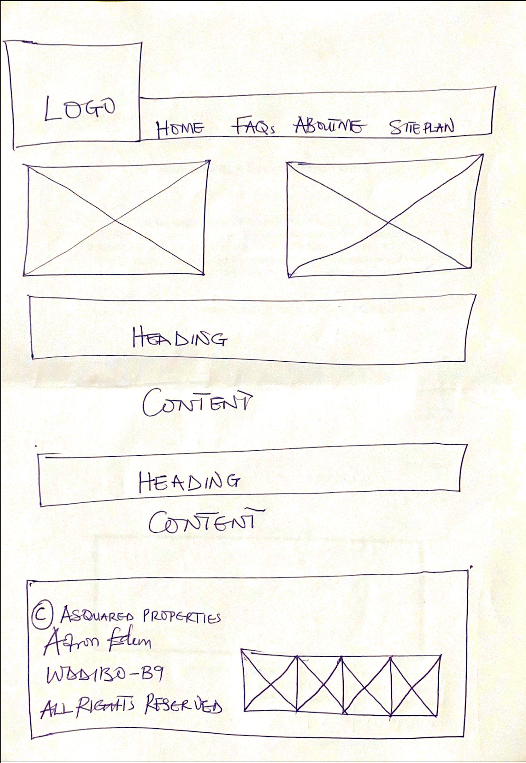 LOGO
HOME FAQs ABOUTME SITEPLAN
HEADING
CONTENT
HEADING
CONTENT
© ASQUARED PROPERTIES
Aaron Edem
WDD130-B9
ALL RIGHTS RESERVED